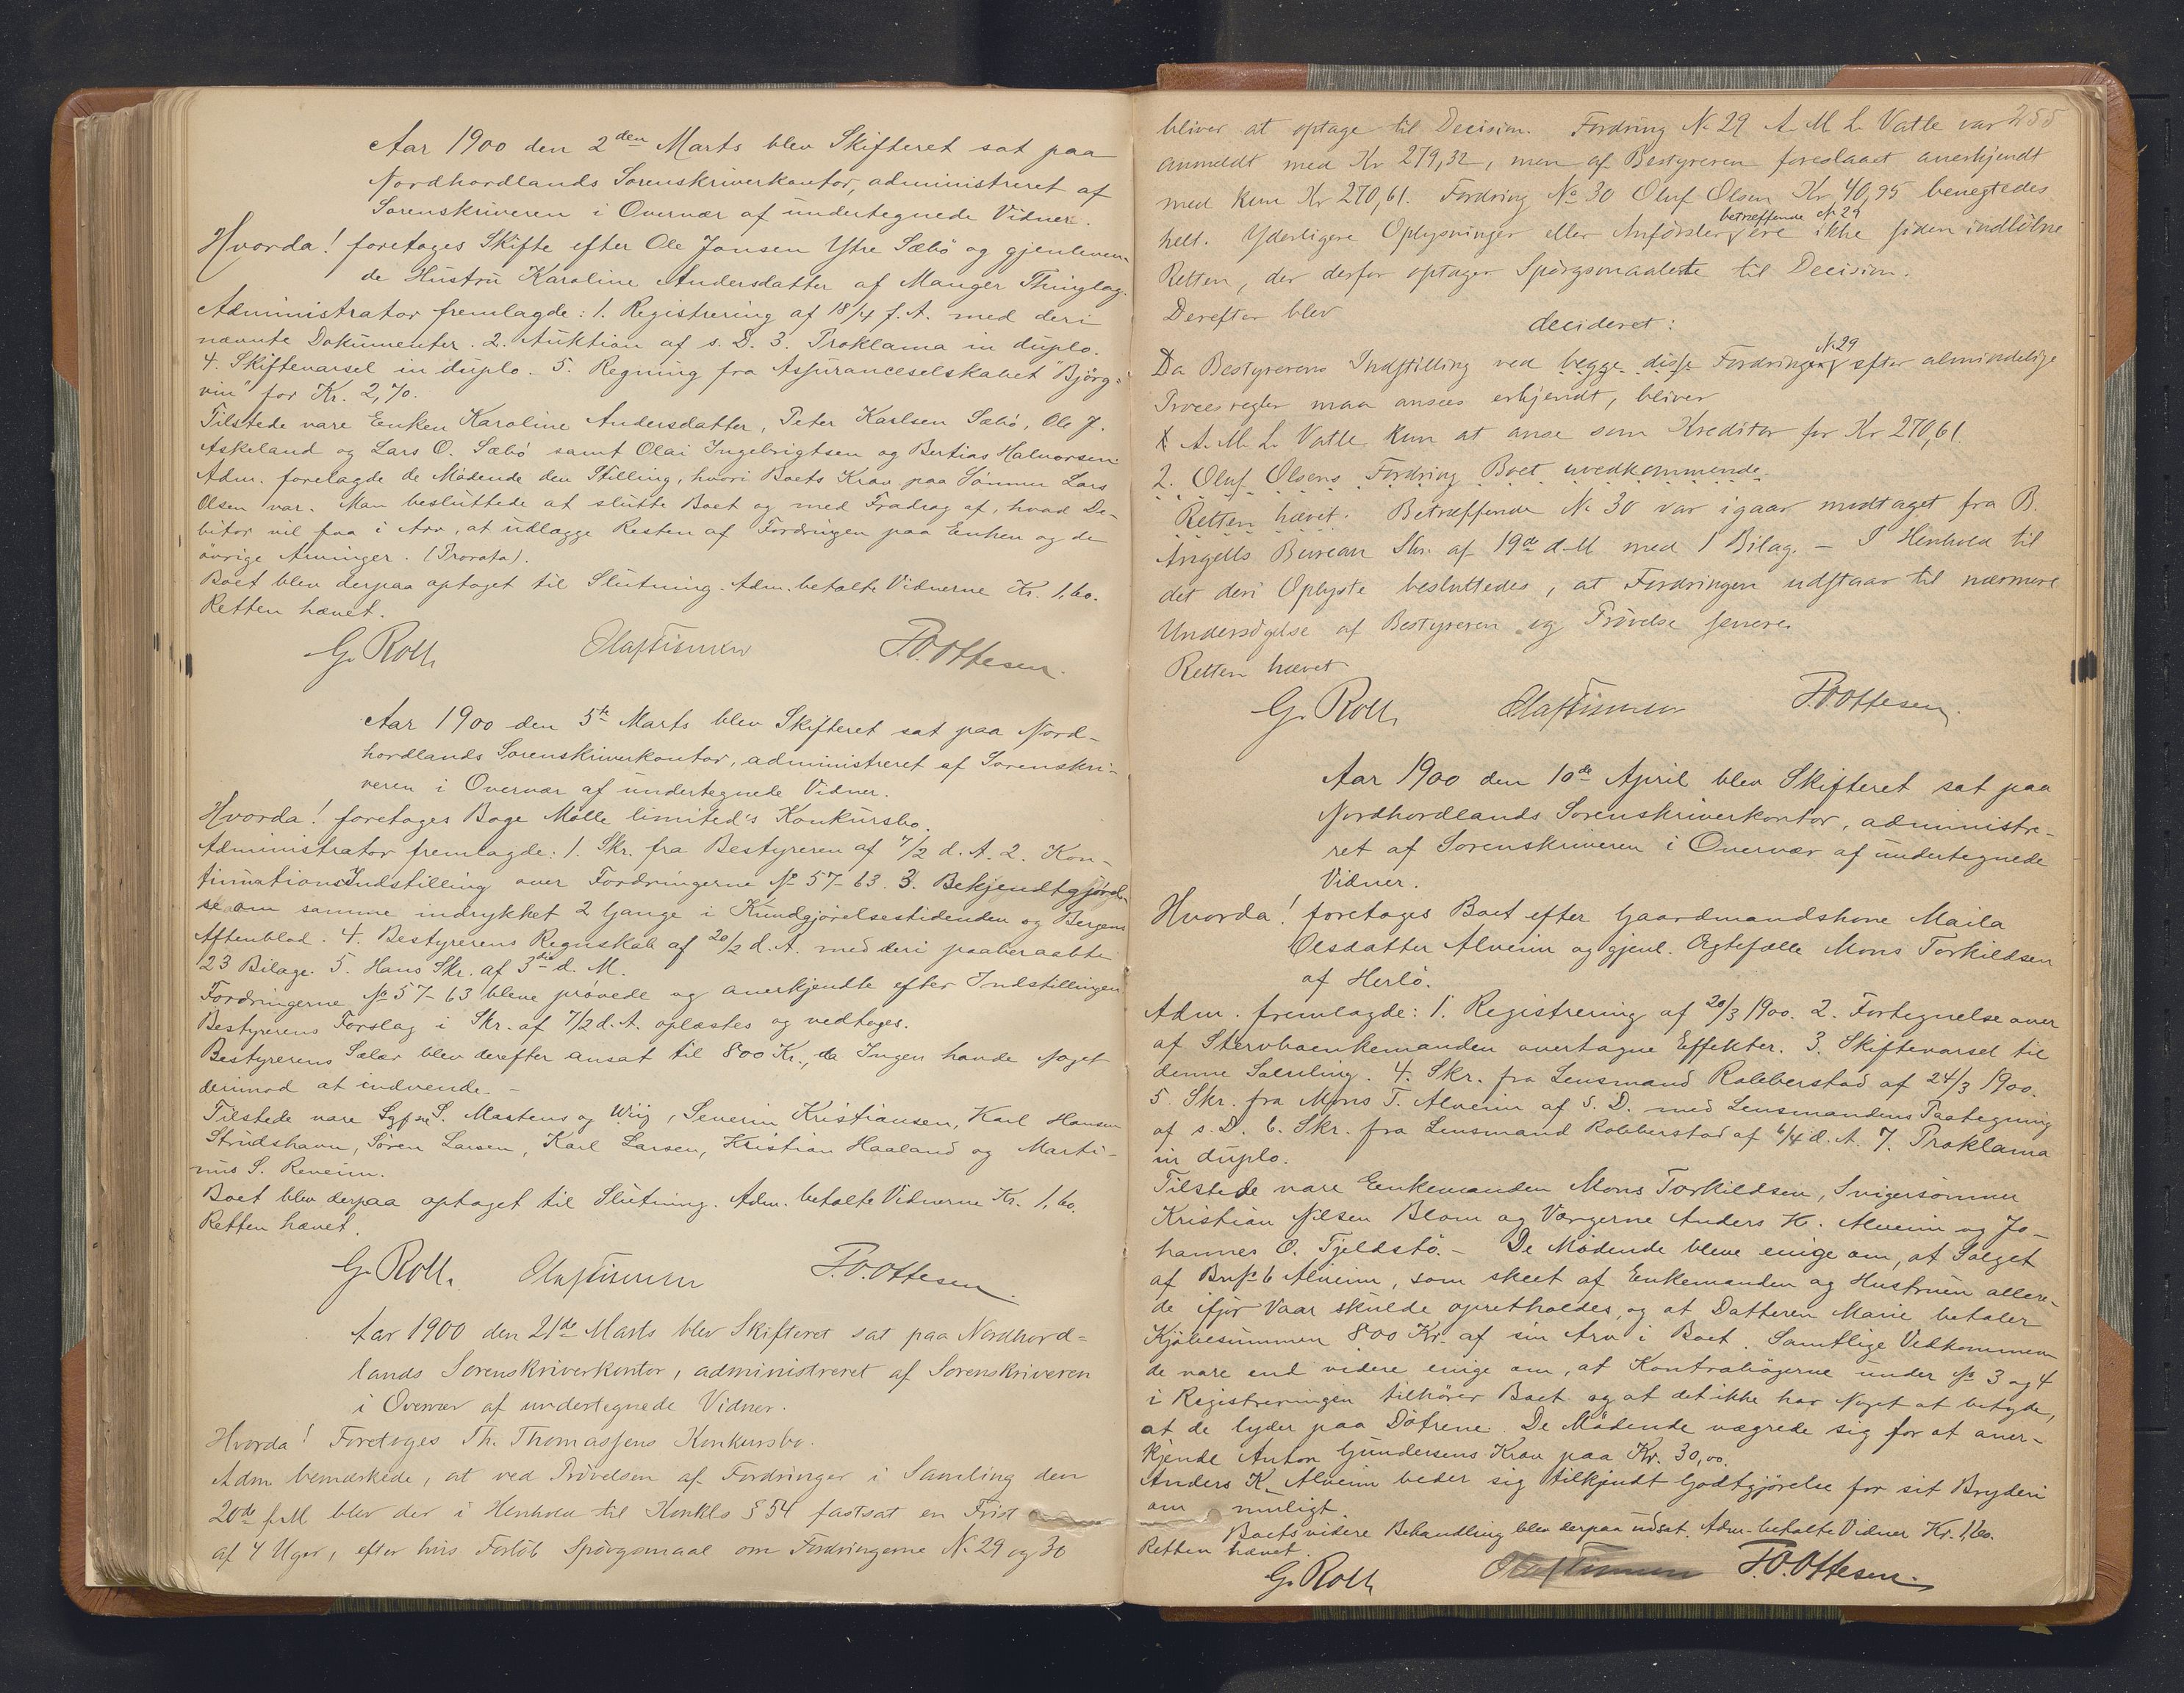 Aar 1900 den 2den Marts blev Skifteret sat paa
Nordhordlands Sorenskriverkontor, administreret af
Sorenskriveren i Overvær af undertegnede Vidner.
Hvorda! foretoges Skifte efter Ole Jonsen Ytre Sæbö og gjenleven-
de Hustru Karoline Andersdatter af Manger Thinglag.
Administrator fremlagde: 1. Registrering af 18/4 f. A. med deri
nævnte Dokumenter. 2. Auktion af s. D. 3. Proklama in duplo.
4. Skiftevarsel in duplo. 5. Regning fra Assuranceselskabet "Björg=
vin" for Kr. 2,70.
Tilstede vare Enken Karoline Andersdatter, Peter Karlsen Sæbö, Ole J.
Askeland og Lars O. Sæbö samt Olai Ingebrigtsen og Bertias Halvorsen.
Adm. forelagde de Mödende den Stilling, hvori Boets Krav paa Sönnen Lars
Olsen var. Man besluttede at slutte Boet og med Fradrag af, hvad De-
bitor vil faa i Arv, at udlægge Resten af Fordringen paa Enken og de
övrige Arvinger. (Prorata).
Boet blev derpaa optaget til Slutning. Adm. betalte Vidnerne Kr. 1,60.
Retten hævet.
G. Roll Olaf Finnen P.O. Ottesen.
Aar 1900 den 5te Marts blev Skifteret sat paa Nord-
hordlands Sorenskriverkontor, administreret af Sorenskri-
veren i Overvær af undertegnede Vidner.
Hvorda! foretoges Boge Mölle limited's Konkursbo.
Administrator fremlagde: 1. Skr. fra Bestyreren af 7/2 d. A. 2. Kon-
tinuationsIndstilling over Fordringerne No 57-63. 3. Bekjendtgjörel-
se om samme indrykket 2 Gange i Kundgjörelsestidenden og Bergens
Aftenblad. 4. Bestyrerens Regnskab af 20/2 d. A. med deri paaberaabte
23 Bilage. 5. Hans Skr. af 3die d. M.
Fordringerne No 57-63 bleve prövede og anerkjendte efter Indstillingen.
Bestyrerens Forslag i Skr. af 7/2 d. A. oplæstes og vedtoges.
Bestyrerens Salær blev derefter ansat til 800 Kr., da Ingen havde Noget
derimod at indvende. -
Tilstede vare S. Martens og Wiig, Severin Kristiansen, Karl Hansen
Strudshavn, Sören Larsen, Karl Larsen, Kristian Haaland og Marti-
nus S. Reveim.
Boet blev derpaa optaget til Slutning. Adm. betalte Vidnerne Kr. 1,60.
Retten hævet.
G. Roll. Olaf Finnen P.O. Ottesen.
Aar 1900 den 21de Marts blev Skifteret sat paa Nordhord=
lands Sorenskriverkontor, administreret af Sorenskriveren
i Overvær af undertegnede Vidner.
Hvorda! Foretoges Th. Thomassens Konkursbo.
Adm. bemærkede, at ved Prövelsen af Fordringer i Samling den
20de f. M. blev der i Henhold til Konkls § 54 fastsat en Frist
af 4 Uger, efter hvis Forlöb Spörgsmaal om Fordringerne No 29 og 30
255
bliver at optage til Decision. Fordring No 29 A. M. L. Vatle var
anmeldt med Kr 279,32, men af Bestyreren foreslaaet anerkjendt
med kun Kr 270,61. Fordring No 30 Oluf Olsen Kr. 40,95 benegtedes
betræffende No 29
helt. Yderligere Oplysninger eller Anförsler ere ikke siden indlöbne
Retten, der derfor optager Spörgsmaalet til Decision.
Derefter blev
decideret:
No 29
Da Bestyrerens Indstilling ved begge disse Fordringer efter almindelige
Procesregler maa ansees erkjendt, bliver
A. M. L. Vatle kun at anse som Kreditor for Kr 270,61.
2. Oluf Olsens Fordring Boet uvedkommende.
Retten hævet. Betræffende No 30 var igaar modtaget fra B.
Angells Bureau Skr. af 19de d. M. med 1 Bilag. - I Henhold til
det deri Oplyste besluttedes, at Fordringen udstaar til nærmere
Undersögelse af Bestyreren og Prövelse senere.
Retten hævet
G. Roll Olaf Finnen P.O. Ottesen.
Aar 1900 den 10de April blev Skifteret sat paa
Nordhordlands Sorenskriverkontor, administre-
ret af Sorenskriveren i Overvær af undertegnede
Vidner.
Hvorda! foretoges Boet efter Gaardmandskone Maila
Olsdatter Alveim og gjenl. Ægtefælle Mons Torkildsen
af Herlö.
Adm. fremlagde: 1. Registrering af 20/3 1900. 2. Fortegnelse over
af Stervboenkemanden overtagne Effekter. 3. Skiftevarsel til
denne Samling. 4. Skr. fra Lensmand Rabberstad af 24/3 1900.
5. Skr. fra Mons T. Alveim af s. D. med Lensmandens Paategning
af s. D. 6. Skr. fra Lensmand Rabberstad af 6/4 d. A. 7. Proklama
in duplo.
Tilstede vare Enkemanden Mons Torkildsen, Svigersönnen
Kristian Nilsen Blom og Værgerne Anders K. Alveim og Jo-
hannes O. Tjeldstö. - De Mödende bleve enige om, at Salget
af Brno 6 Alveim, som skeet af Enkemanden og Hustruen allere-
de ifjor Vaar skulde opretholdes, og at Datteren Marie betaler
Kjöbesummen 800 Kr. af sin Arv i Boet. Samtlige Vedkommen-
de vare end videre enige om, at Kontraböger​ne under No 3 og 4
i Registreringen tilhörer Boet og at det ikke har Noget at betyde,
at de lyder paa Dötrene. De Mödende vægrede sig for at aner-
kjende Anton Gundersens Krav paa Kr. 30,00.
Anders K. Alveim beder sig tilkjendt Godtgjörelse for sit Bryderi
om muligt.
Boets videre Behandling blev derpaa udsat. Adm. betalte Vidner Kr. 1,60.
Retten hævet.
G. Roll Olaf Finnen P.O. Ottesen.